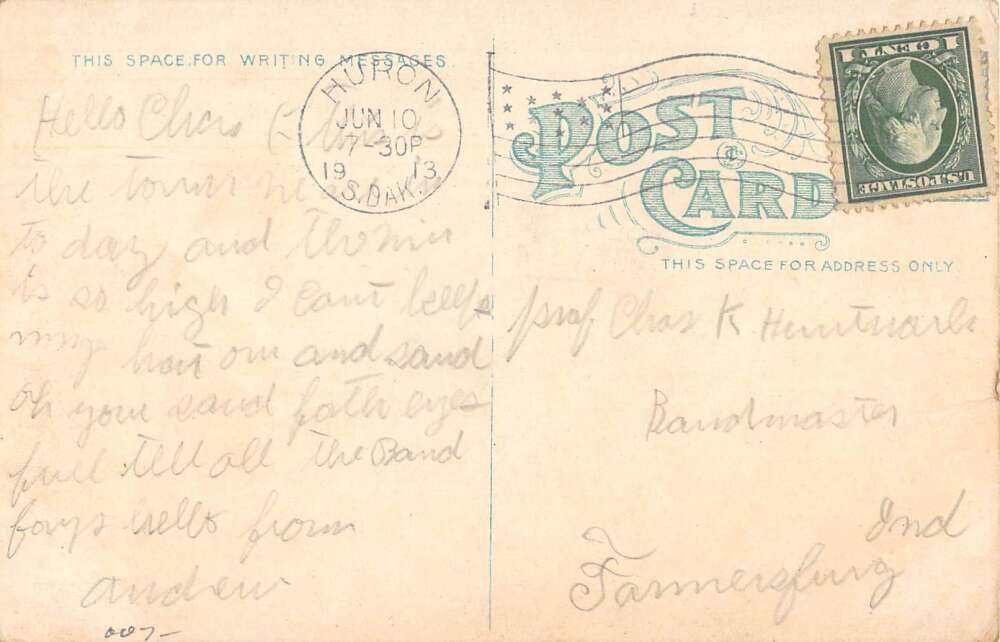 THIS SPACE FOR WRITING MESSAGES
Hello Chas this is
the town
to day and the win
is so high I cant keep
my hat on and sand
oh you sand both eyes
full tell all the Band
boys hello from
andrew
007-
HURON
JUN 10
7-30P
19 13
S.DAK.
POST
CARD
THIS SPACE FOR ADDRESS ONLY
1 CENT 1
U.S. POSTAGE
prof Chas K
Bandmaster
Ind
Farmersburg